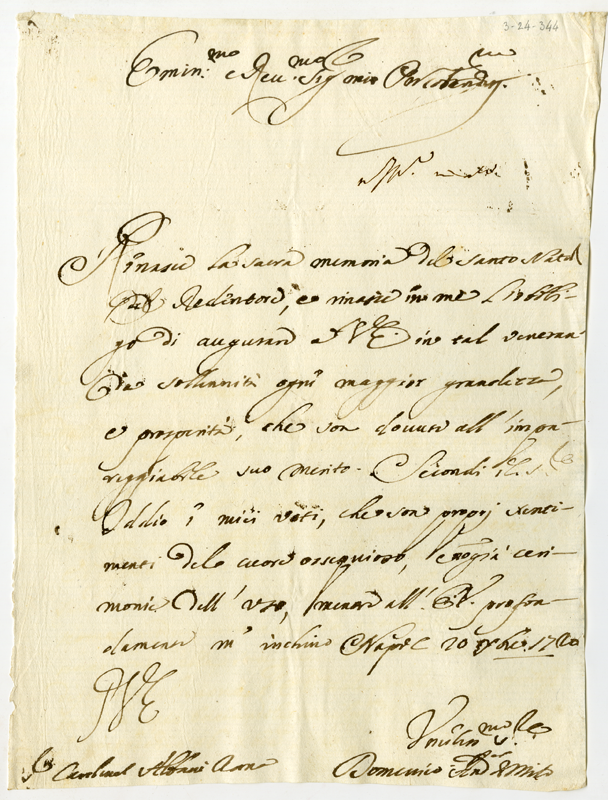 3-24-344
Emin:mo e Reu:mo Sig:
Rinasce la sacra memoria del santo Natal
del Redentore, e rinasce in me l'obbli-
go di augurare a V.E. in tal veneran-
da sollennità ogni maggior grandezza,
e prosperità, che son dovute all'impa-
reggiabile suo merito. Secondi il
Iddio i miei voti, che son proprj senti-
menti del cuore ossequioso, e non già ceri-
monie dell'uso, mentre all' E.V. profon-
damente m'inchino Napoli 20 Xbre 17
V E
Cardinal Albani Roma
Domenico